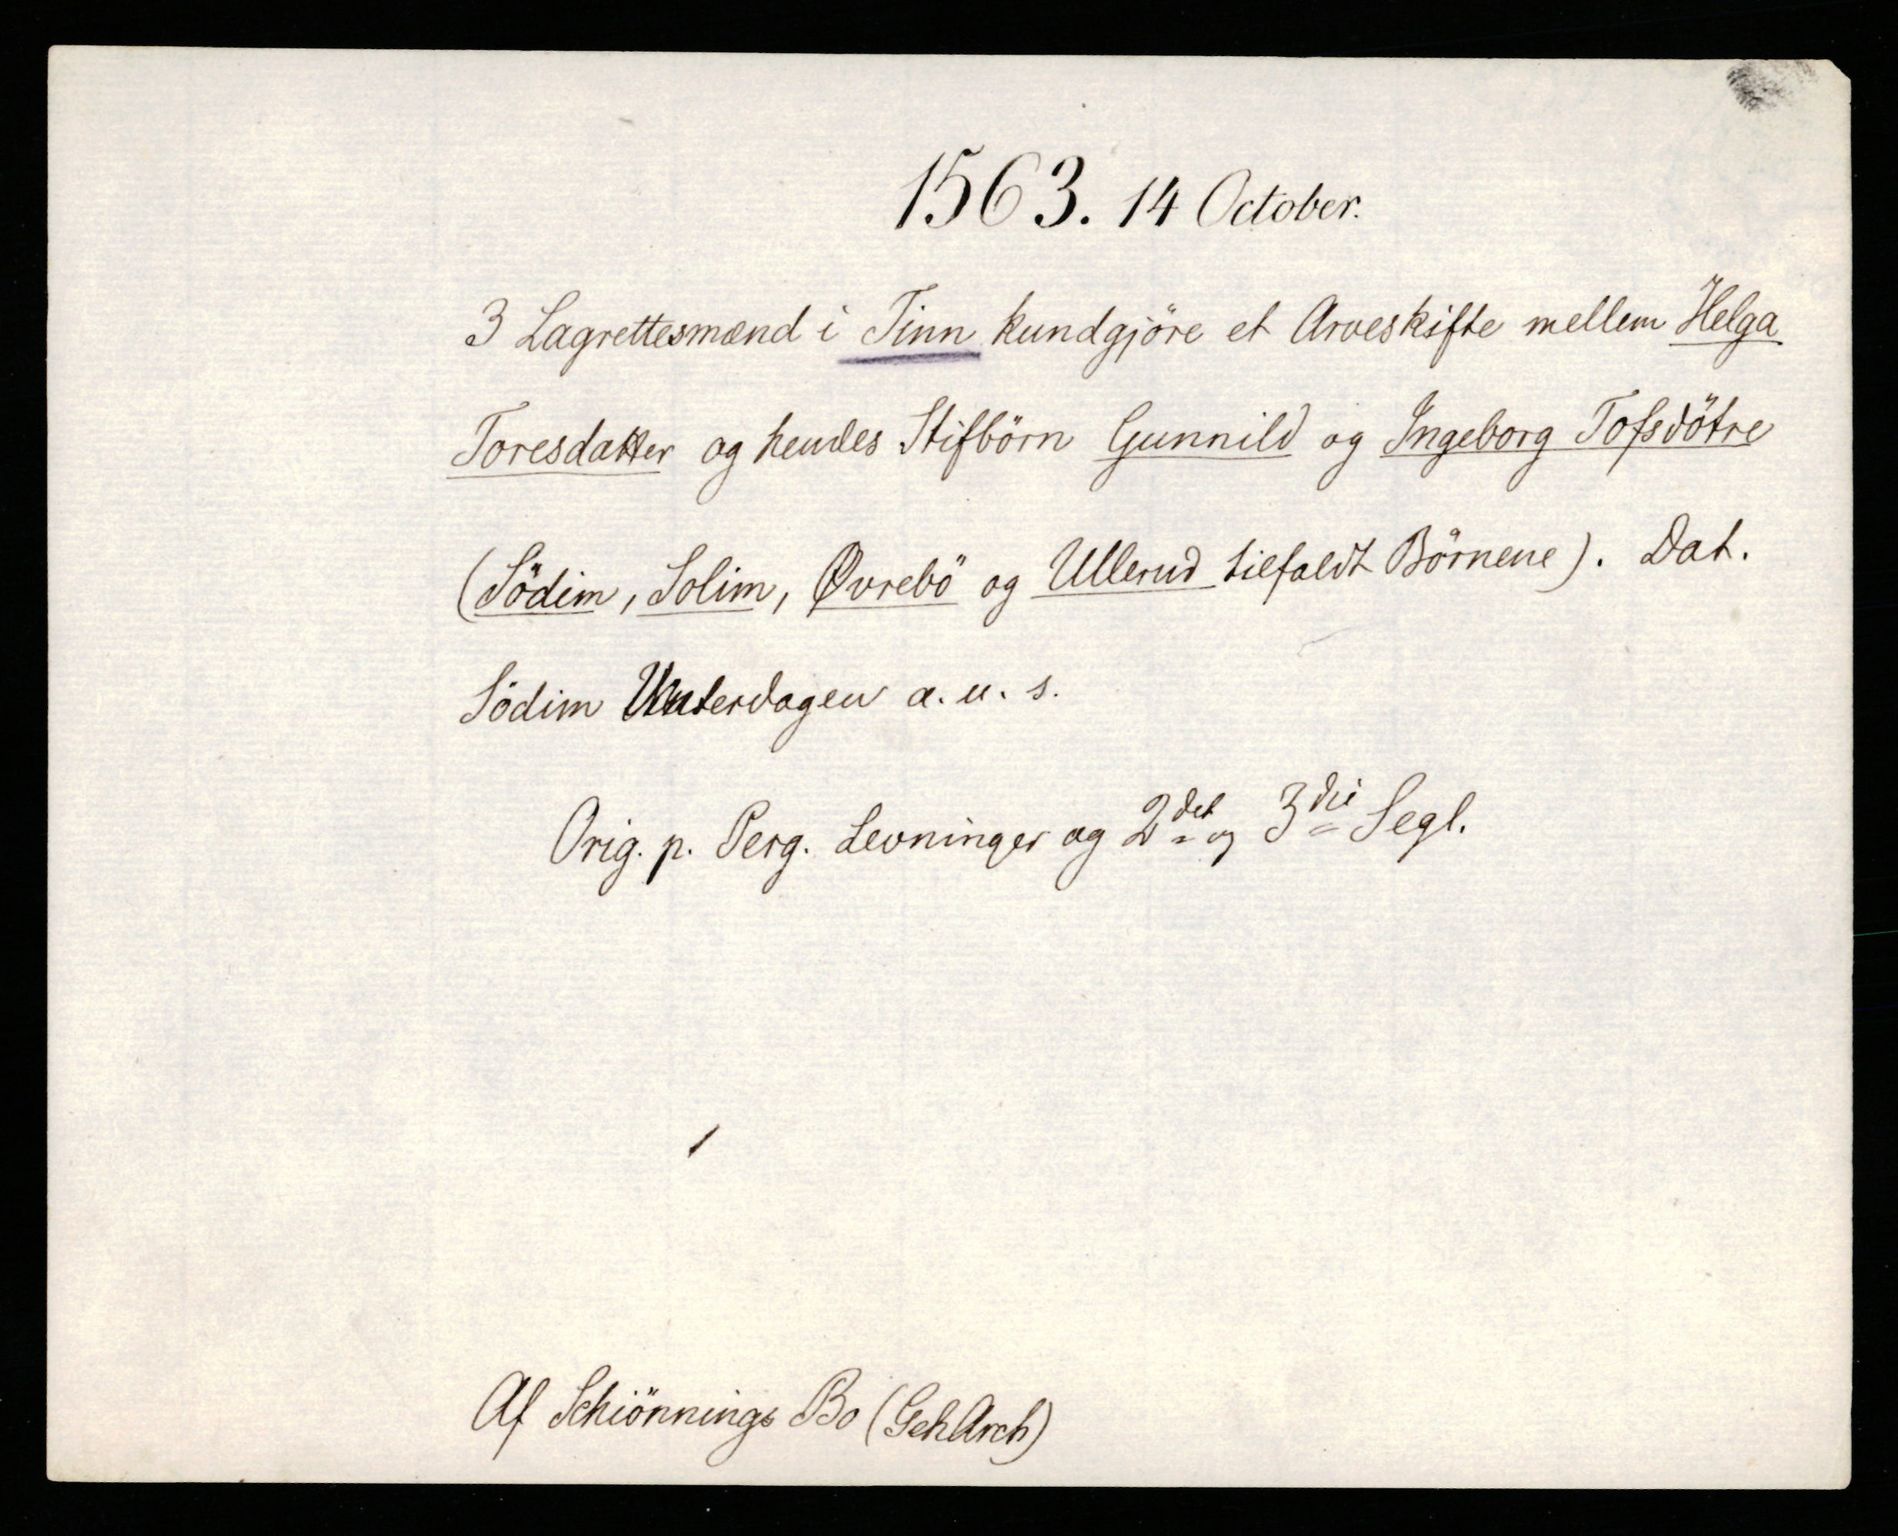 1563. 14 October.
3 Lagrettesmænd i Tinn kundgjöre et Arveskifte mellem Helga
Toresdatter og hendes Stifbörn Gunnild og Ingeborg Tofsdötre
(Södim, Solim, Øvrebö og Ullerud tilfaldt Börnene). Dat.
Södim Vinterdagen a. u. s.
Orig. p. Perg. Levninger og 2det og 3die Segl.
Af Schiönnings Bo (GehArch)